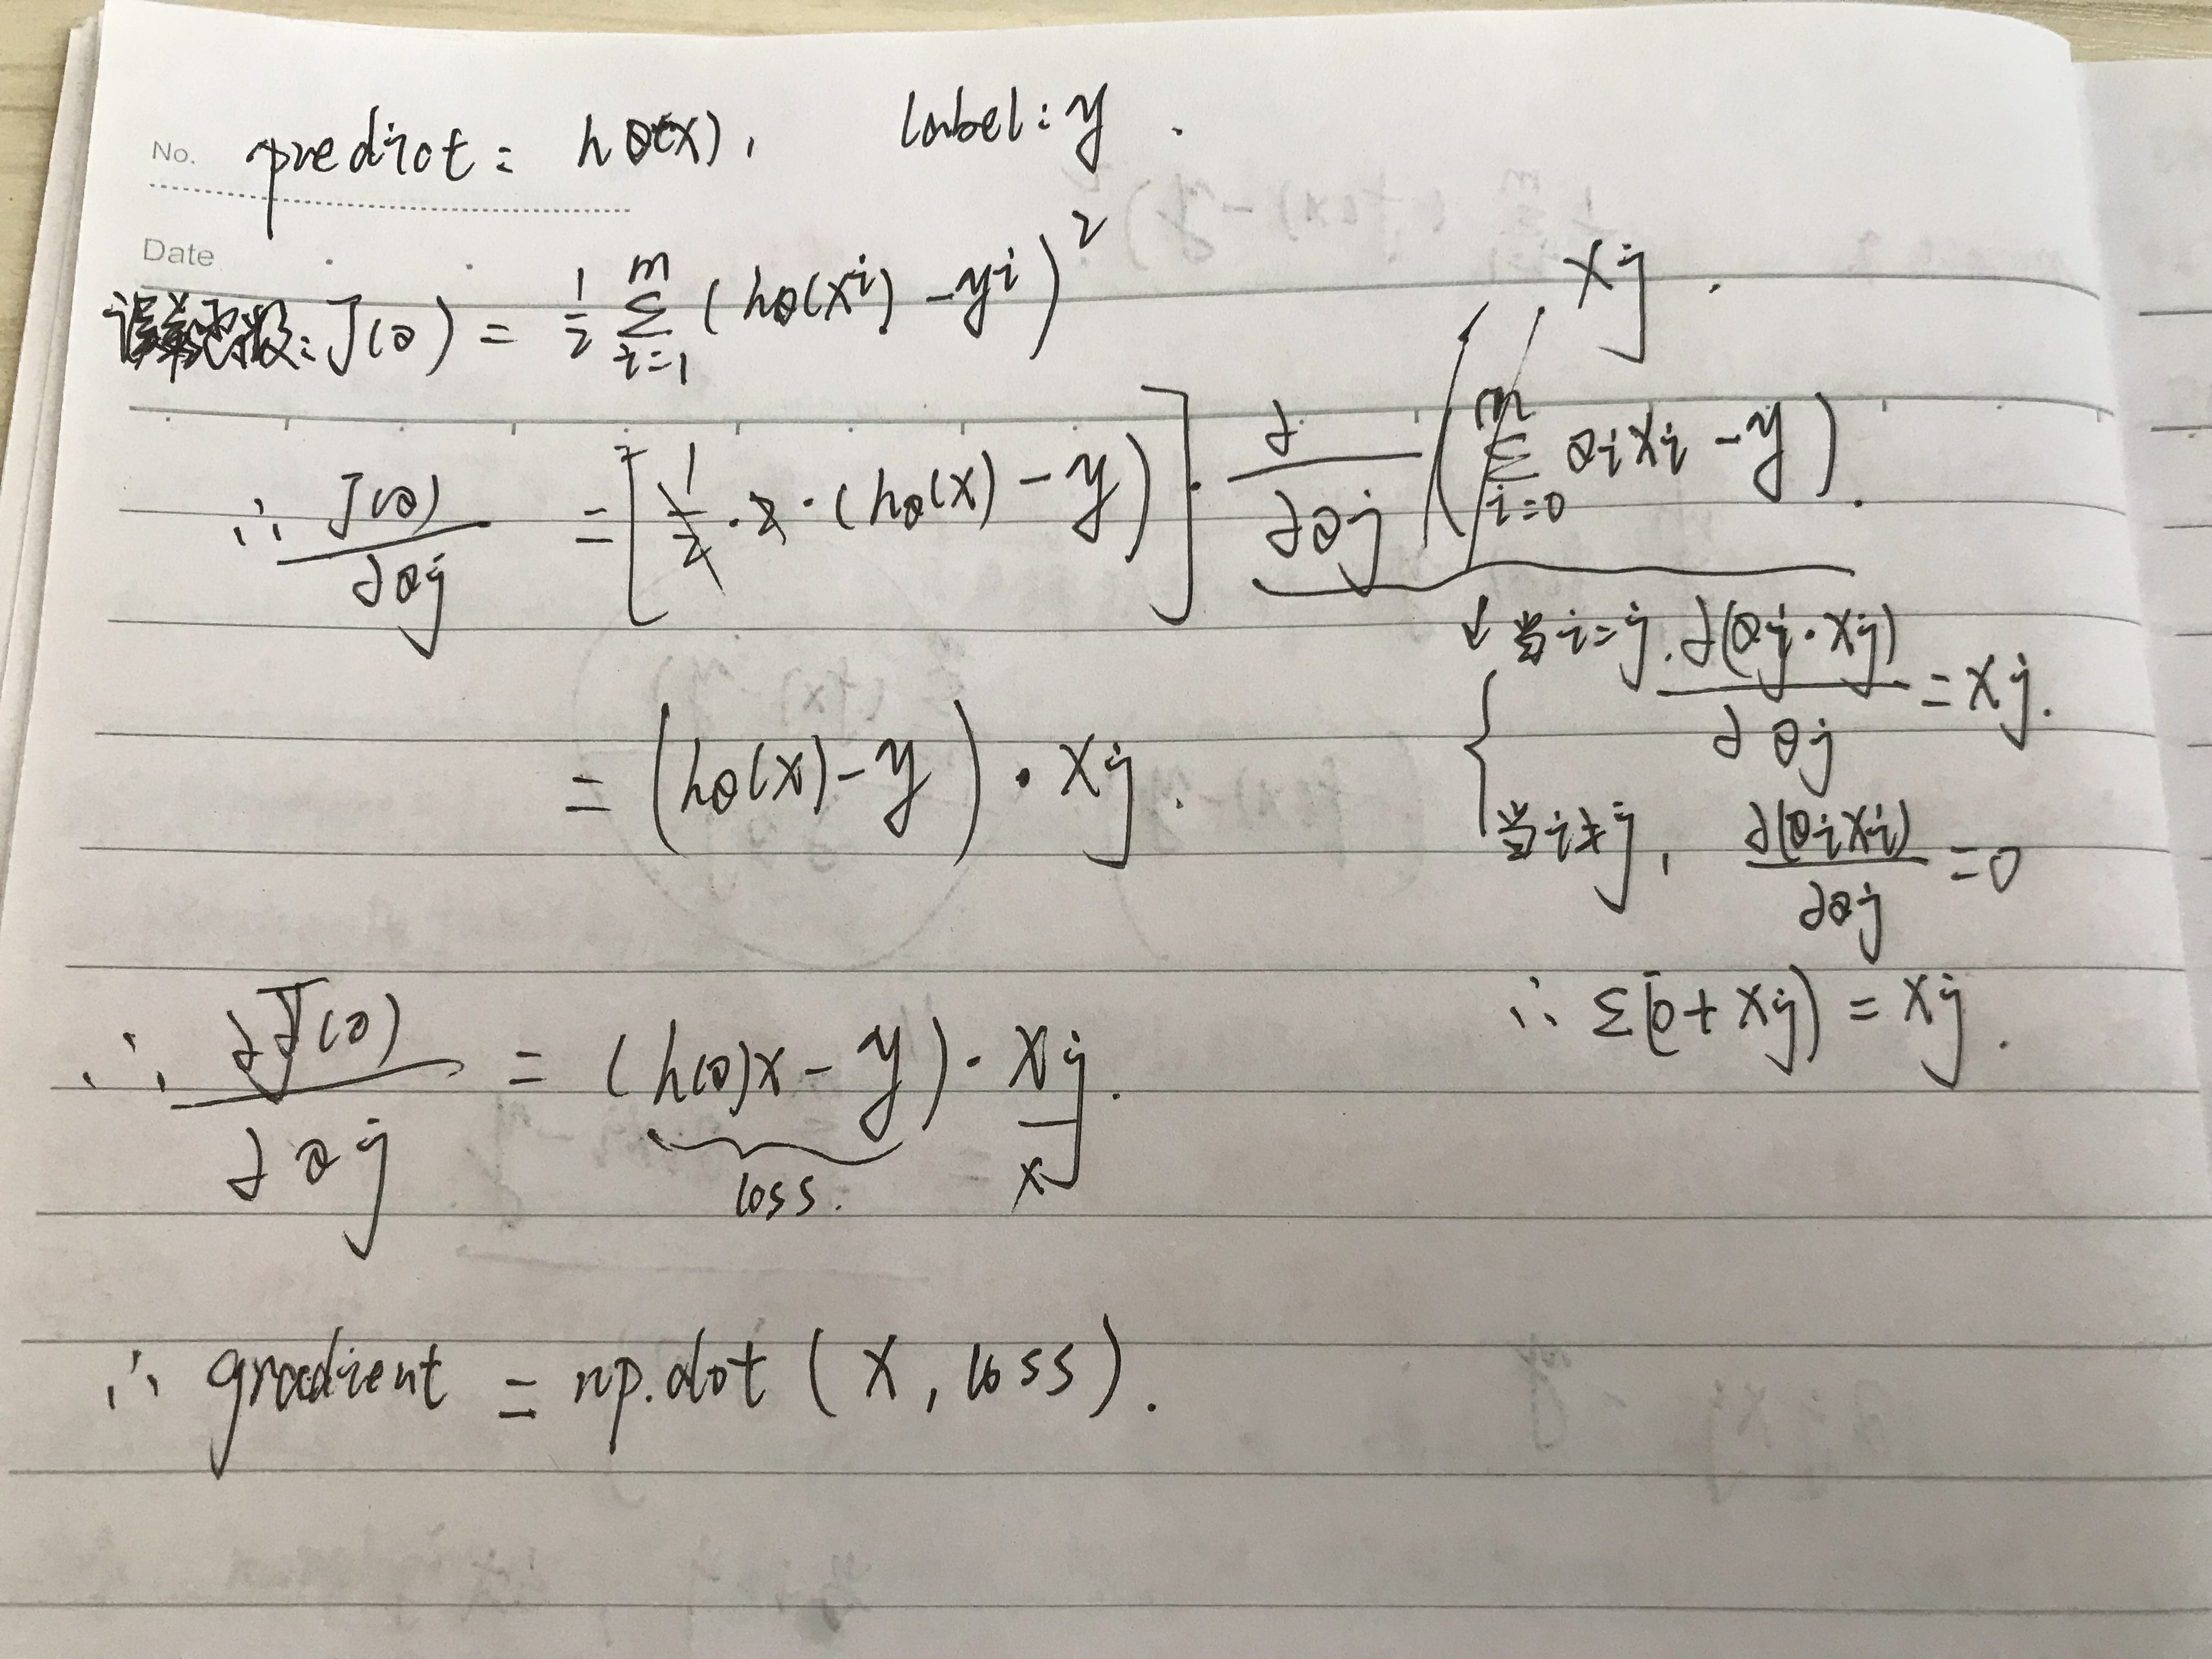 No. predict: hθ(x), label: y.
Date
误差函数: J(θ) = 1/2 Σ_{i=1}^{m} (hθ(x^i) - y^i)^2
xj.
∴ J(θ)/∂θj = [1/2 · 2 · (hθ(x) - y)] · ∂/∂θj (Σ_{i=0}^{m} θi xi - y).
↓ 当 i=j. ∂(θj · xj)/∂θj = xj.
= (hθ(x) - y) · xj.
当 i≠j, ∂(θi xi)/∂θj = 0
∴ Σ(0 + xj) = xj.
∴ ∂J(θ)/∂θj = (h(θ)x - y) · xj.
loss. x
∴ gradient = np.dot(x, loss).